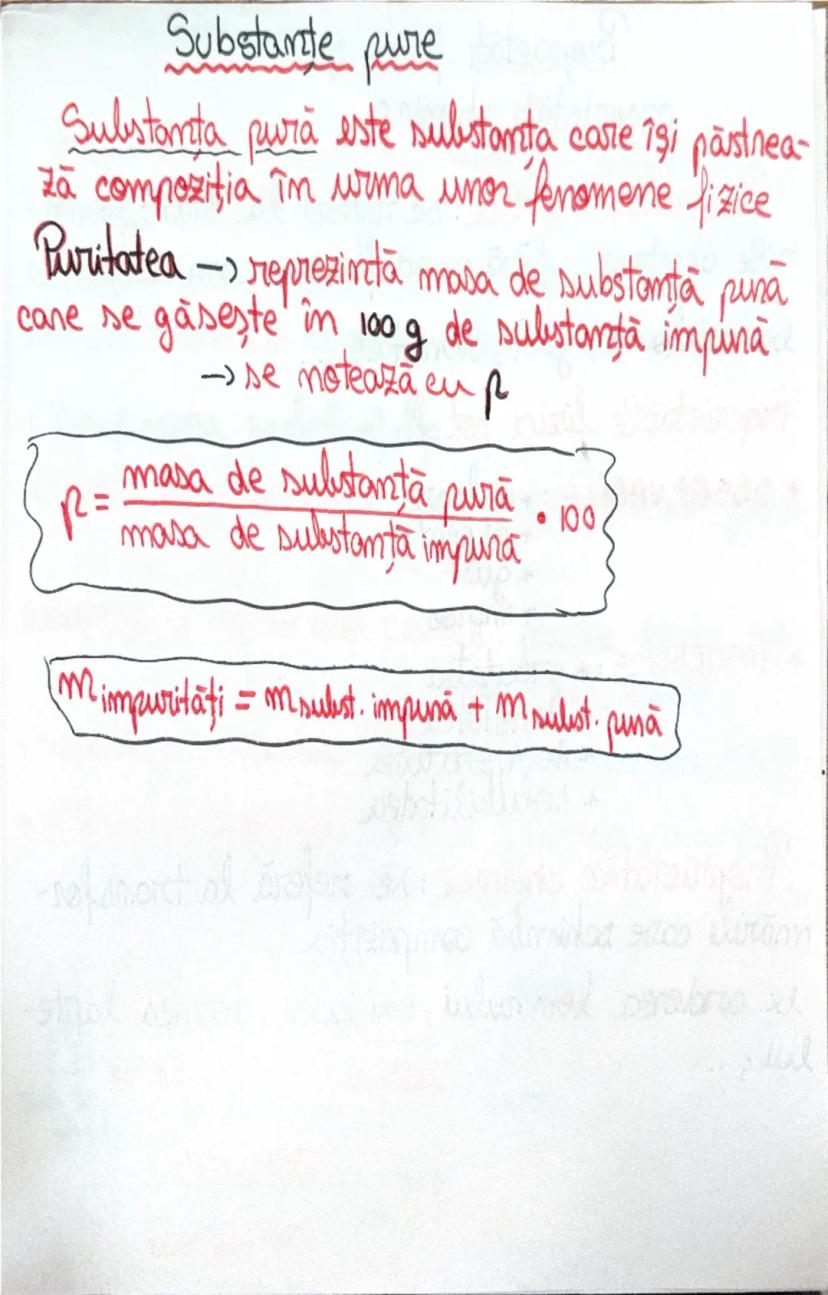 Substanțe pure
Substanța pură este substanța care își păstrea-
ză compoziția în urma unor fenomene fizice
Puritatea → reprezintă masa de substanță pură
care se găsește în 100 g de substanță impură
→ se notează cu p
p = masa de substanță pură / masa de substanță impură • 100
m impurități = m subst. impură + m subst. pură